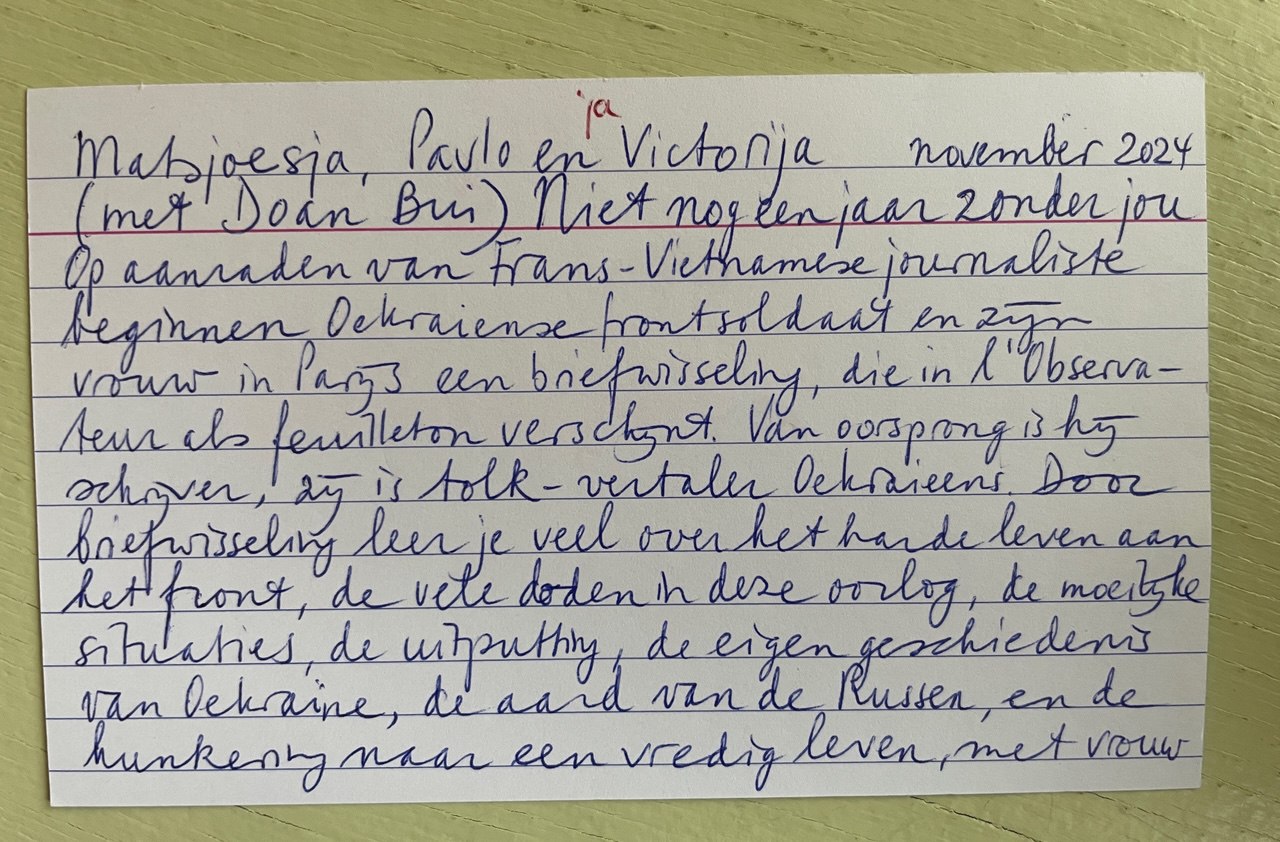 ja
Matsjoesja, Pavlo en Victorija november 2024
(met Doan Bui) Niet nog een jaar zonder jou
Op aanraden van Frans-Vietnamese journaliste
beginnen Oekraiense frontsoldaat en zijn
vrouw in Parijs een briefwisseling, die in l'Observa-
teur als feuilleton verschijnt. Van oorsprong is hij
schrijver, zij is tolk-vertaler Oekraieens. Door
briefwisseling leer je veel over het harde leven aan
het front, de vele doden in deze oorlog, de moeilijke
situaties, de uitputting, de eigen geschiedenis
van Oekraine, de aard van de Russen, en de
hunkering naar een vredig leven, met vrouw